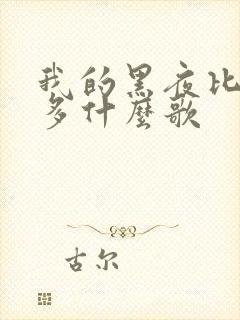 我的黑夜比
多什麼歌
古尔